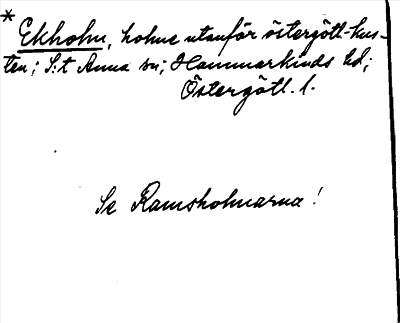 * Ekholm, holme utanför östergötl-kus-
ten; S:t Anna sn; Hammarkinds hd;
Östergötl. l.
Se Ramsholmarna!